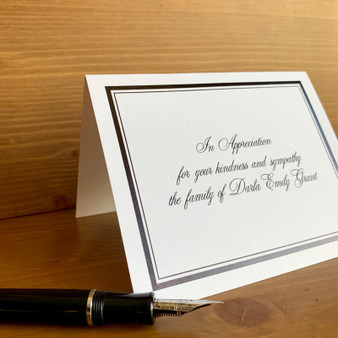 In Appreciation
for your kindness and sympathy
the family of Darla Emily Grant